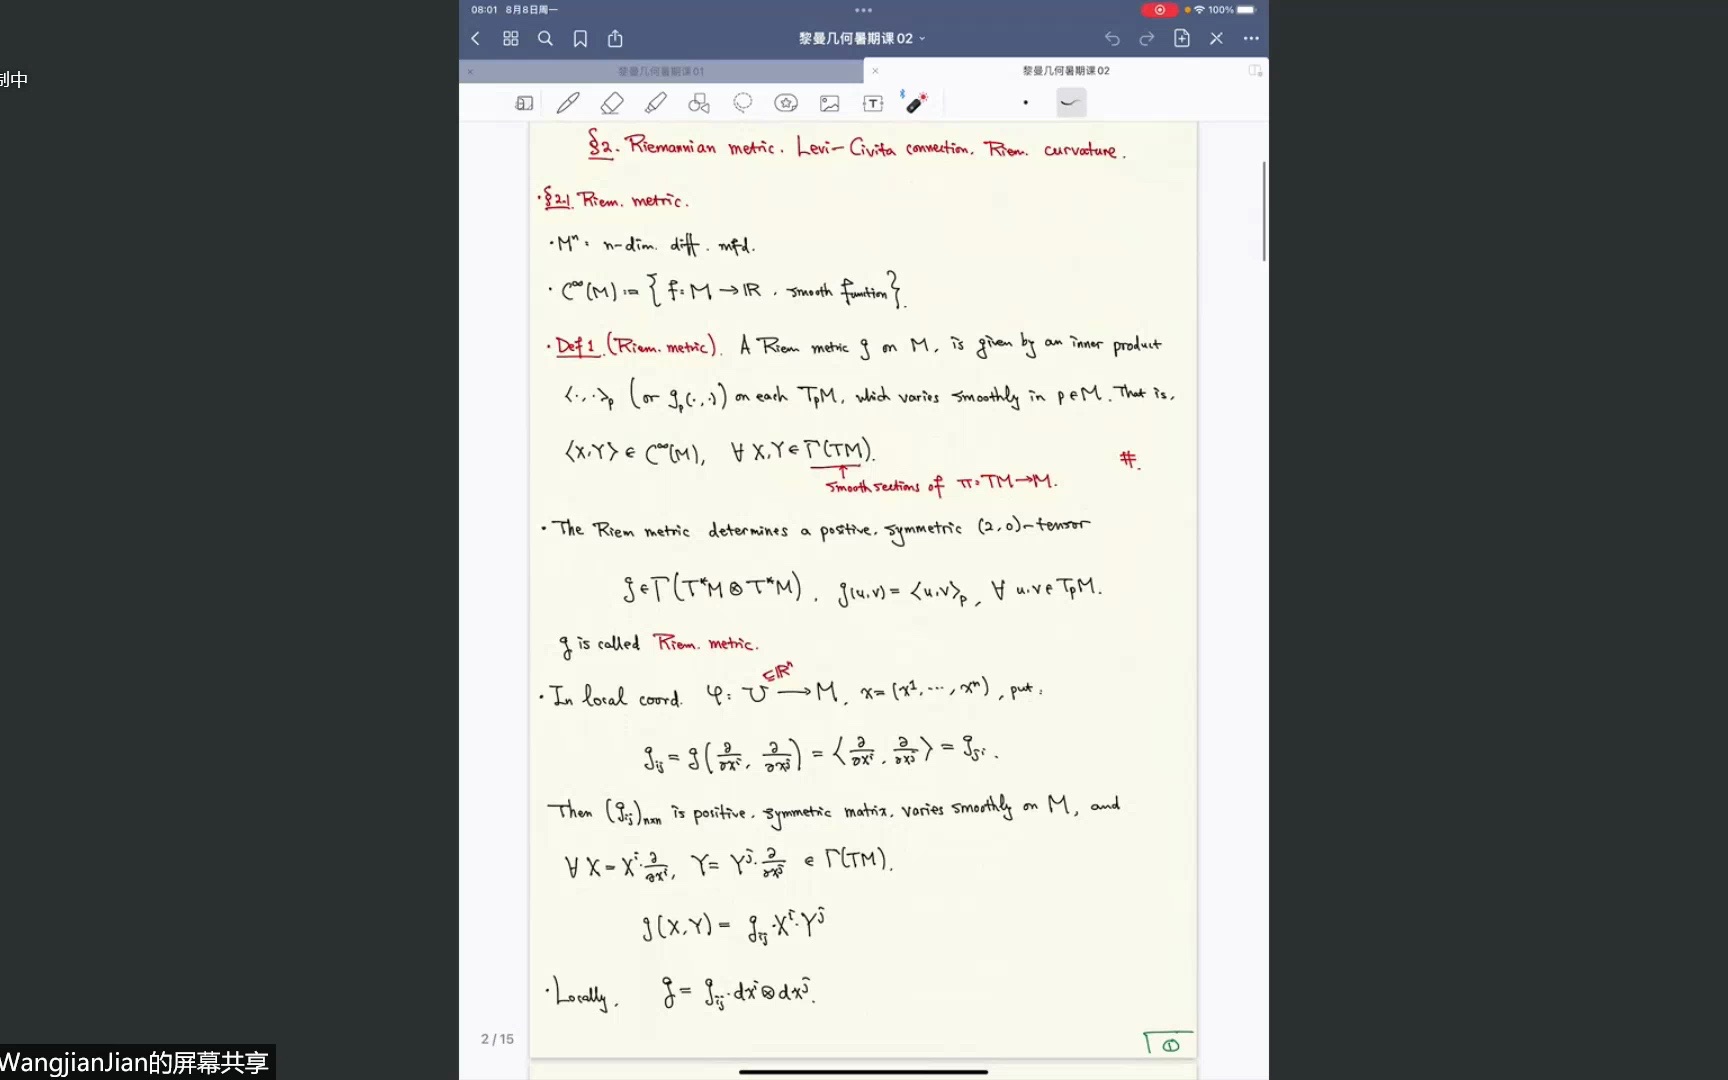 08:01 8月8日周一
100%
黎曼几何暑期课 02
黎曼几何暑期课 01
黎曼几何暑期课 02
制中
§2. Riemannian metric. Levi-Civita connection. Riem. curvature.
· §2.1 Riem. metric.
· Mⁿ: n-dim. diff. mfd.
· C^∞(M) := { f: M → ℝ, smooth function }.
· Def 1 (Riem. metric). A Riem metric g on M, is given by an inner product
⟨·,·⟩_p (or g_p(·,·)) on each T_pM, which varies smoothly in p∈M. That is,
⟨X,Y⟩ ∈ C^∞(M), ∀ X,Y ∈ Γ(TM). #.
↑
smooth sections of π: TM→M.
· The Riem metric determines a positive, symmetric (2,0)-tensor
g∈Γ(T*M⊗T*M), g(u,v) = ⟨u,v⟩_p, ∀ u,v∈T_pM.
g is called Riem. metric.
· In local coord. φ: U ⊆ℝⁿ → M, x=(x¹, ⋯, xⁿ), put:
g_ij = g(∂/∂xⁱ, ∂/∂xʲ) = ⟨∂/∂xⁱ, ∂/∂xʲ⟩ = g_ji.
Then (g_ij)_n×n is positive, symmetric matrix, varies smoothly on M, and
∀ X = Xⁱ·∂/∂xⁱ, Y = Yʲ·∂/∂xʲ ∈ Γ(TM),
g(X,Y) = g_ij·Xⁱ·Yʲ
· Locally, g = g_ij·dxⁱ⊗dxʲ.
2 / 15
①
WangjianJian的屏幕共享